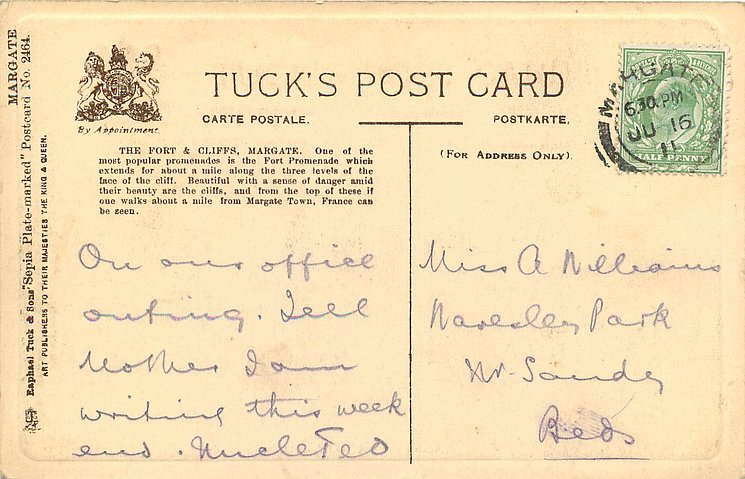 MARGATE
Raphael Tuck & Sons' "Sepia Plate-marked" Postcard No. 2464.
ART PUBLISHERS TO THEIR MAJESTIES THE KING & QUEEN.
By Appointment.
TUCK'S POST CARD
CARTE POSTALE.
POSTKARTE.
(FOR ADDRESS ONLY).
THE FORT & CLIFFS, MARGATE. One of the
most popular promenades is the Fort Promenade which
extends for about a mile along the three levels of the
face of the cliff. Beautiful with a sense of danger amid
their beauty are the cliffs, and from the top of these if
one walks about a mile from Margate Town, France can
be seen.
On our office
outing. Tell
Mother I am
writing this week
end. Uncle Ted
MARGATE
6.30 PM
JU 16
11
HALF PENNY
Miss A Williams
Waresley Park
Nr. Sandy
Beds